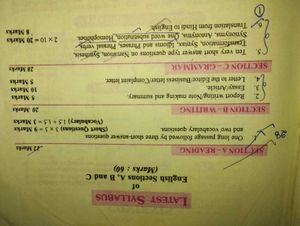 LATEST SYLLABUS
of
English Sections, A, B and C
(Marks : 60)
SECTION A - READING
12 Marks
1. One long passage followed by three short-answer-questions
and two vocabulary questions.
(Short Questions) 3 × 3 = 9 Marks
(Vocabulary) 1.5 + 1.5 = 3 Marks
SECTION B - WRITING
20 Marks
2. Report writing/Note making and summary
5 Marks
3. Essay/Article.
10 Marks
4. Letter to the Editor/Business letter/Complaint letter.
5 Marks
SECTION C - GRAMMAR
28 Marks
5. Ten very short answer type questions on Narration, Synthesis,
Transformation, Syntax, Idioms and Phrases, Phrasal verbs,
Synonyms, Antonyms, One word substitution, Homophones.
2 × 10 = 20 Marks
6. Translation from Hindi to English.
8 Marks